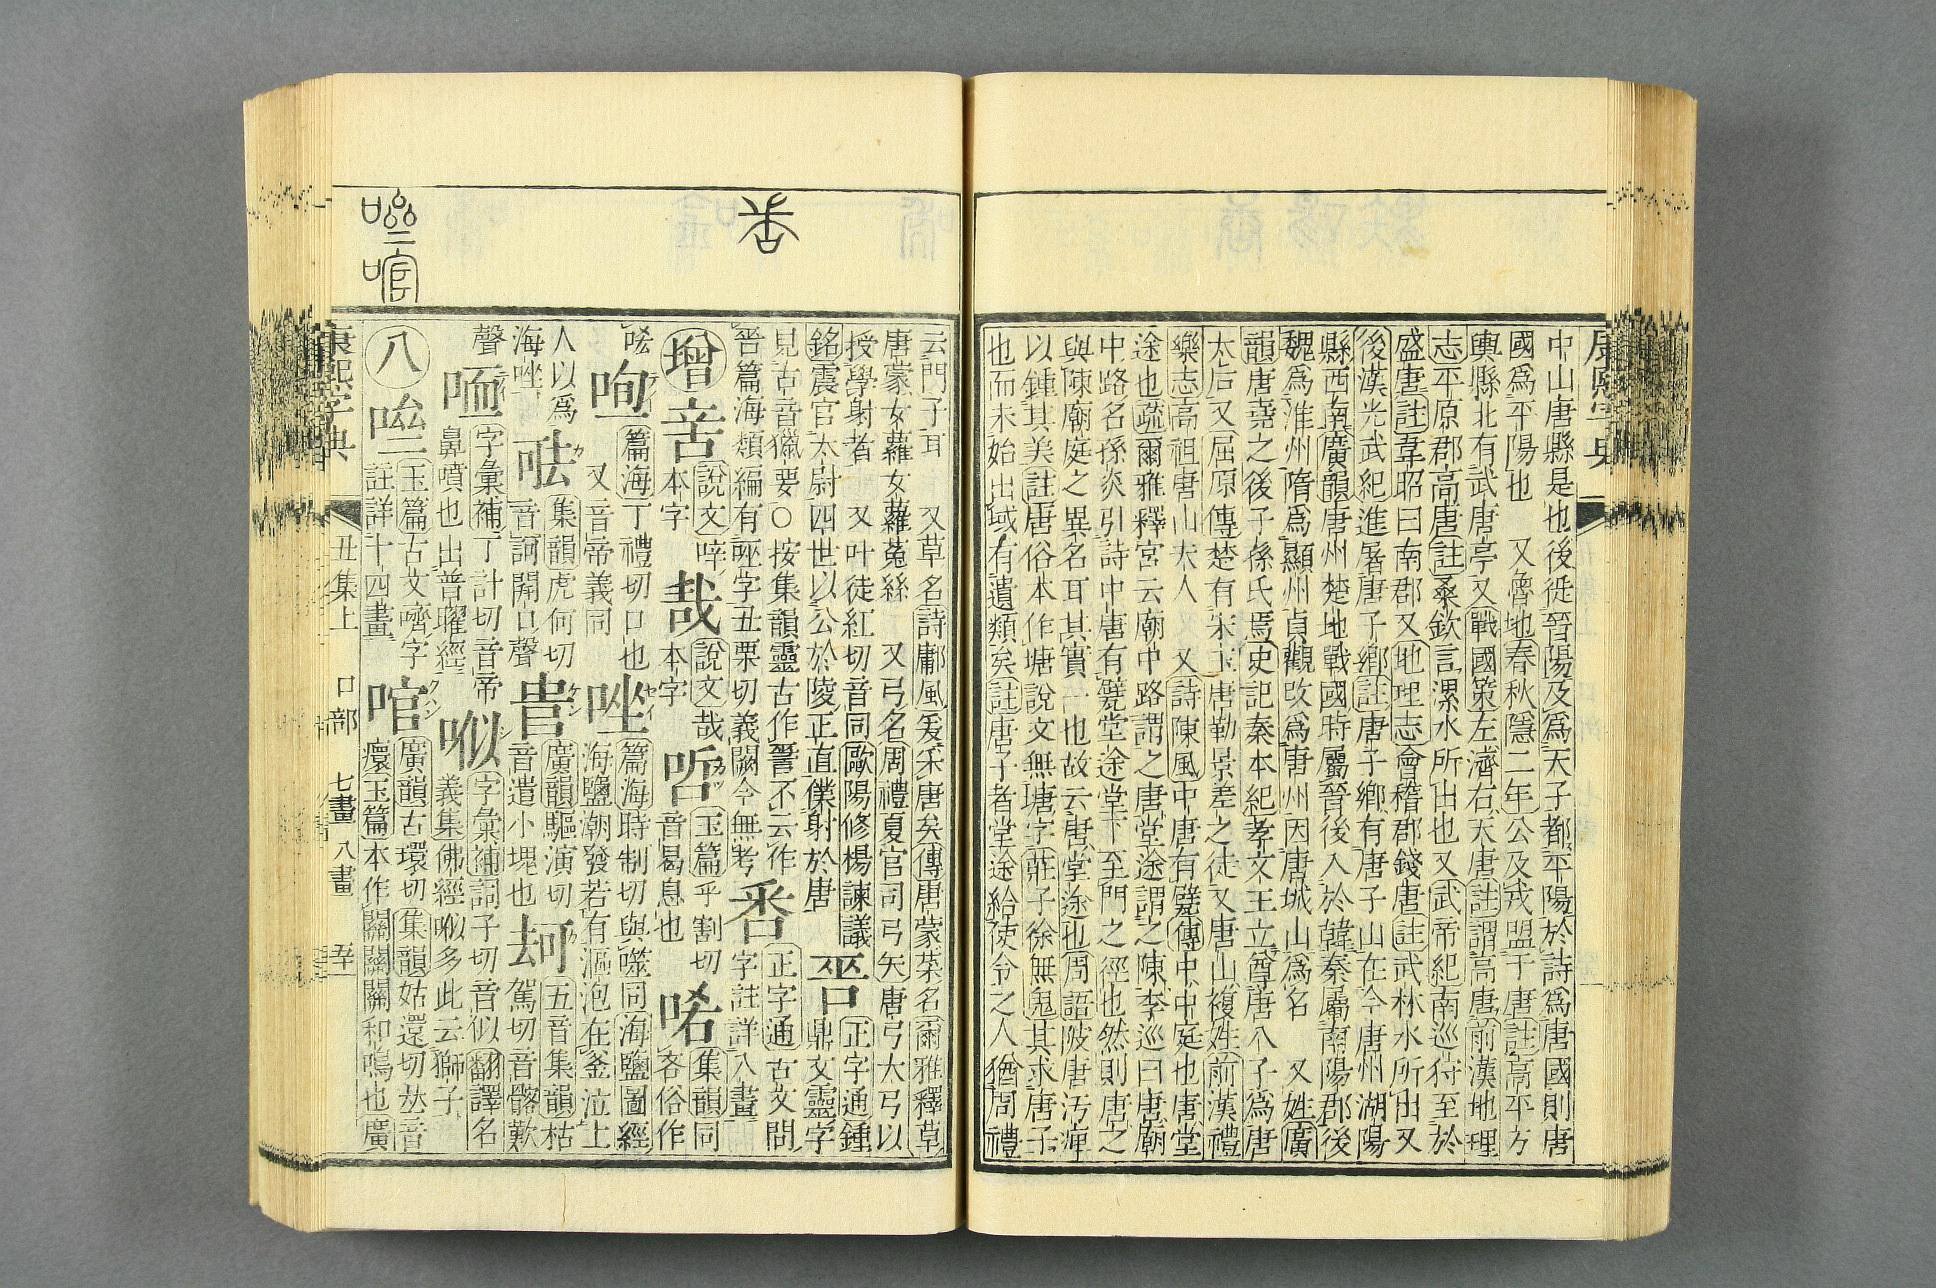 中山唐縣是也後徙晉陽及爲天子都平陽於詩爲唐國則唐
國爲平陽也　又魯地春秋隱二年公及戎盟于唐註高平方
輿縣北有武唐亭又戰國策左濟右天唐註謂高唐前漢地理
志平原郡高唐註桑欽言漯水所出也又武帝紀南巡狩至於
盛唐註韋昭曰南郡又地理志會稽郡錢唐註武林水所出又
後漢光武紀進屠唐子鄉註唐子鄉有唐子山在今唐州湖陽
縣西南廣韻唐州楚地戰國時屬晉後入於韓秦屬南陽郡後
魏爲淮州隋爲顯州貞觀攺爲唐州因唐城山爲名　又姓廣
韻唐堯之後子孫氏焉史記秦本紀孝文王立尊唐八子爲唐
太后又屈原傳楚有宋玉唐勒景差之徒又唐山複姓前漢禮
樂志高祖唐山夫人　又詩陳風中唐有甓傳中中庭也唐堂
途也疏爾雅釋宮云廟中路謂之唐堂途謂之陳李巡曰唐廟
中路名孫炎引詩中唐有甓堂途堂下至門之徑也然則唐之
與陳廟庭之異名耳其實一也故云唐堂途也周語陂唐汚庳
以鍾其美註唐俗本作塘說文無塘字莊子徐無鬼其求唐子
也而未始出域有遺類矣註唐子者堂途給使令之人猶周禮
云門子耳　又草名詩鄘風爰采唐矣傳唐蒙菜名爾雅釋草
唐蒙女蘿女蘿菟絲　又弓名周禮夏官司弓矢唐弓大弓以
授學射者　又叶徒紅切音同歐陽修楊諫議
銘震官太尉四世以公於陵正直僕射於唐
𠱠正字通鍾鼎文靈字
見古音獵要○按集韻靈古作𤫊不云作
㖠正字通古文問字註詳八畫
𠱠篇海類編有誣字丑栗切義闕今無考
增　𠱫說文啐本字　㦲說文哉本字　㖞玉篇乎割切音曷息也　唂集韻同吝俗作
㖁
咰篇海丁禮切口也　又音帝義同　唑篇海時制切與噬同海鹽圖經海鹽潮發若有漚泡在釜泣上
人以爲海唑
呿集韻虎何切音訶開口聲　𠳋廣韻驅演切音遣小塊也　㰤五音集韻枯駕切音髂歎聲
唖字彙補丁計切音帝鼻噴也出普曜經　㖩字彙補詞子切音似翻譯名義集佛經㖩多此云獅子
八　𠵊玉篇古文嚌字註詳十四畫　㖵廣韻古環切集韻姑還切𠀤音瘝玉篇本作關關關和鳴也廣
康熙字典　丑集上　口部　七畫　八畫　卒
康熙字典